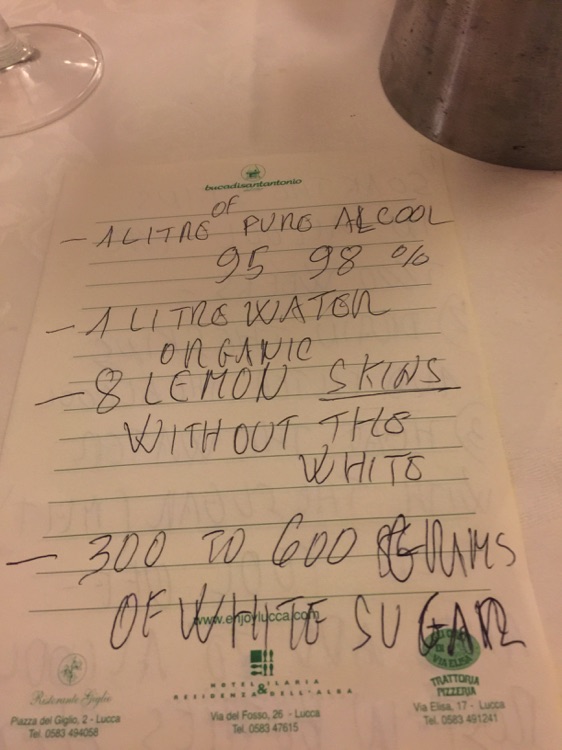 bucadisantantonio
OF
- 1 LITRE PURE ALCOOL
95 98 %
- 1 LITRE WATER
ORGANIC
- 8 LEMON SKINS
WITHOUT THE
WHITE
- 300 TO 600 GRAMS
OF WHITE SUGAR
www.enjoylucca.com
HOTEL ILARIA
&
RESIDENZA DELL'ALBA
VIA ELISA
TRATTORIA
PIZZERIA
Ristorante Giglio
Piazza del Giglio, 2 - Lucca
Tel. 0583 494058
Via del Fosso, 26 - Lucca
Tel. 0583 47615
Via Elisa, 17 - Lucca
Tel. 0583 491241